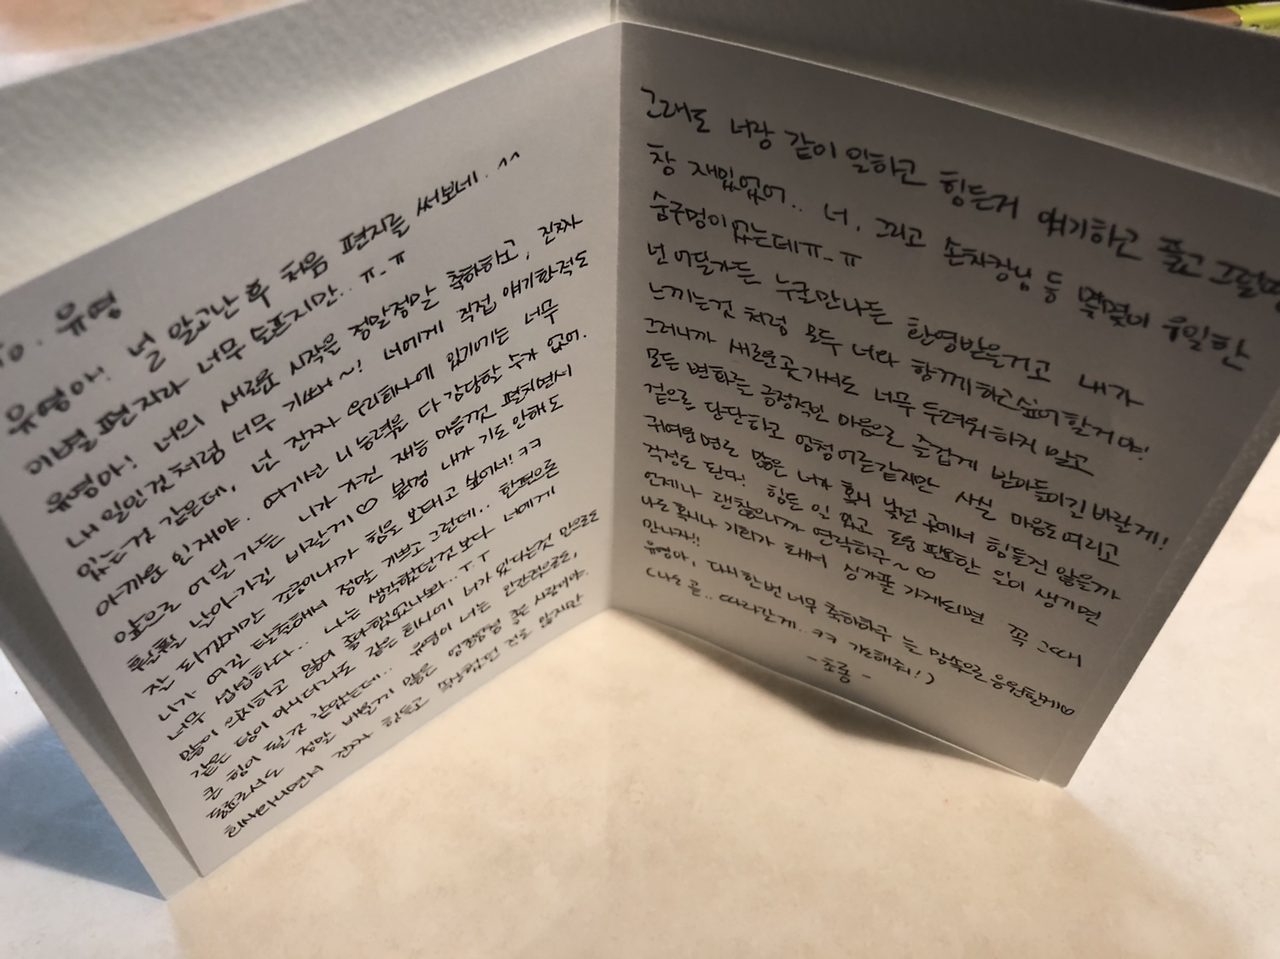 To. 유영
유영아! 널 알고난 후 처음 편지를 써보네. ^^
이별 편지라 너무 슬프지만.. ㅠ_ㅠ
유영아! 너의 새로운 시작을 정말정말 축하하고, 진짜
내 일인것처럼 너무 기뻐~! 너에게 직접 얘기한적도
있는것 같은데, 넌 진짜 우리회사에 있기에는 너무
아까운 인재야. 여기선 니 능력을 다 감당할 수가 없어.
앞으로 어딜가든 니가 가진 재능 마음껏 펼치면서
훨훨 날아가길 바랄게♡ 분명 내가 기도 안해도
잘 되겠지만 조금이나마 힘을 보태고 싶어서! ㅋㅋ
니가 여길 탈출해서 정말 기쁘고 그런데.. 한편으론
너무 섭섭하다... 나는 생각했던것 보다 너에게
많이 의지하고 많이 좋아했었나봐... ㅜㅜ
같은 팀이 아니더라도 같은 회사에 너가 있다는것 만으로
큰 힘이 된것 같았는데.. 유영이 너는 인간적으로,
동료로서도 정말 배울게 많은 엄청엄청 좋은 사람이야.
회사다니면서 진짜 힘들고 퍽퍽했던 적도 많지만
그래도 너랑 같이 일하고 힘든거 얘기하고 풀고 그럴때
참 재밌었어.. 너, 그리고 손차장님 등 몇몇이 유일한
숨구멍이었는데ㅠ_ㅠ
넌 어딜가든 누굴만나든 환영받을거고 내가
느끼는것 처럼 모두 너와 함께하고싶어할거야!
그러니까 새로운곳 가서도 너무 두려워하지 말고
모든 변화를 긍정적인 마음으로 즐겁게 받아들이길 바랄게!
겉으로 단단하고 엄청 어른같지만 사실 마음도 여리고
귀여운 면도 많은 너가 혹시 낯선 곳에서 힘들진 않을까
걱정도 된다! 힘든 일 있고 도움 필요한 일이 생기면
언제나 괜찮으니까 연락하구~♡
나도 혹시나 기회가 돼서 싱가폴 가게되면 꼭 그때
만나자!!
유영아, 다시한번 너무 축하하구 늘 맘속으로 응원할게♡
(나도 곧.. 따라갈게.. ㅋㅋ 기도해줘!)
- 초롱 -